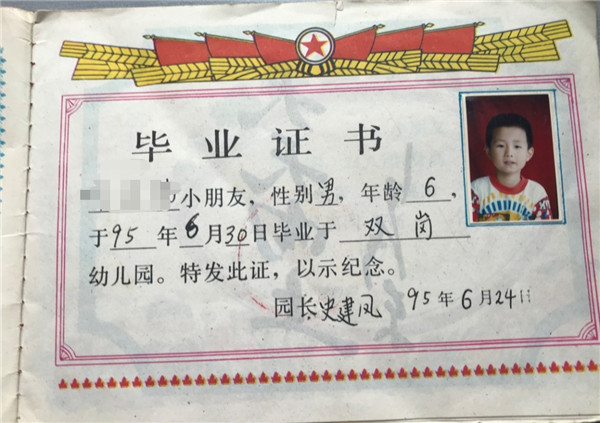 毕业证书
小朋友，性别男，年龄6，
于95年6月30日毕业于双岗
幼儿园。特发此证，以示纪念。
园长史建风 95年6月24日